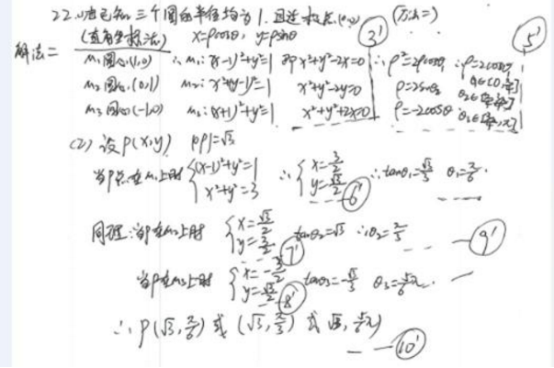 22.(1)法已知三个圆的半径均为1.且过极点(0,0) (方法二)
解法二 (直角坐标法) x=ρcosθ, y=ρsinθ 3' 5'
M₁圆心(1,0) ∴M₁:(x-1)²+y²=1 即x²+y²-2x=0 ∴ρ²=2ρcosθ, ∴ρ=2cosθ, θ₁∈[0,π/4]
M₂圆心(0,1) M₂: x²+(y-1)²=1 x²+y²-2y=0 ρ=2sinθ θ₂∈[π/4,3π/4]
M₃圆心(-1,0) M₃:(x+1)²+y²=1 x²+y²+2x=0 ρ=-2cosθ θ₃∈[3π/4,π]
(2) 设P(x,y) |OP|=√3
当P点在M₁上时 {(x-1)²+y²=1 x²+y²=3 ∴{x=3/2 y=√3/2 6' ∴tanθ₁=√3/3 θ₁=π/6
同理:当P在M₂上时 {x=√3/2 y=3/2 7' tanθ₂=√3 ∴θ₂=π/3 9'
当P在M₃上时 {x=-3/2 y=√3/2 8' tanθ₃=-√3/3 θ₃=5π/6
∴P(√3,π/6)或(√3,π/3)或(√3,5π/6)
10'